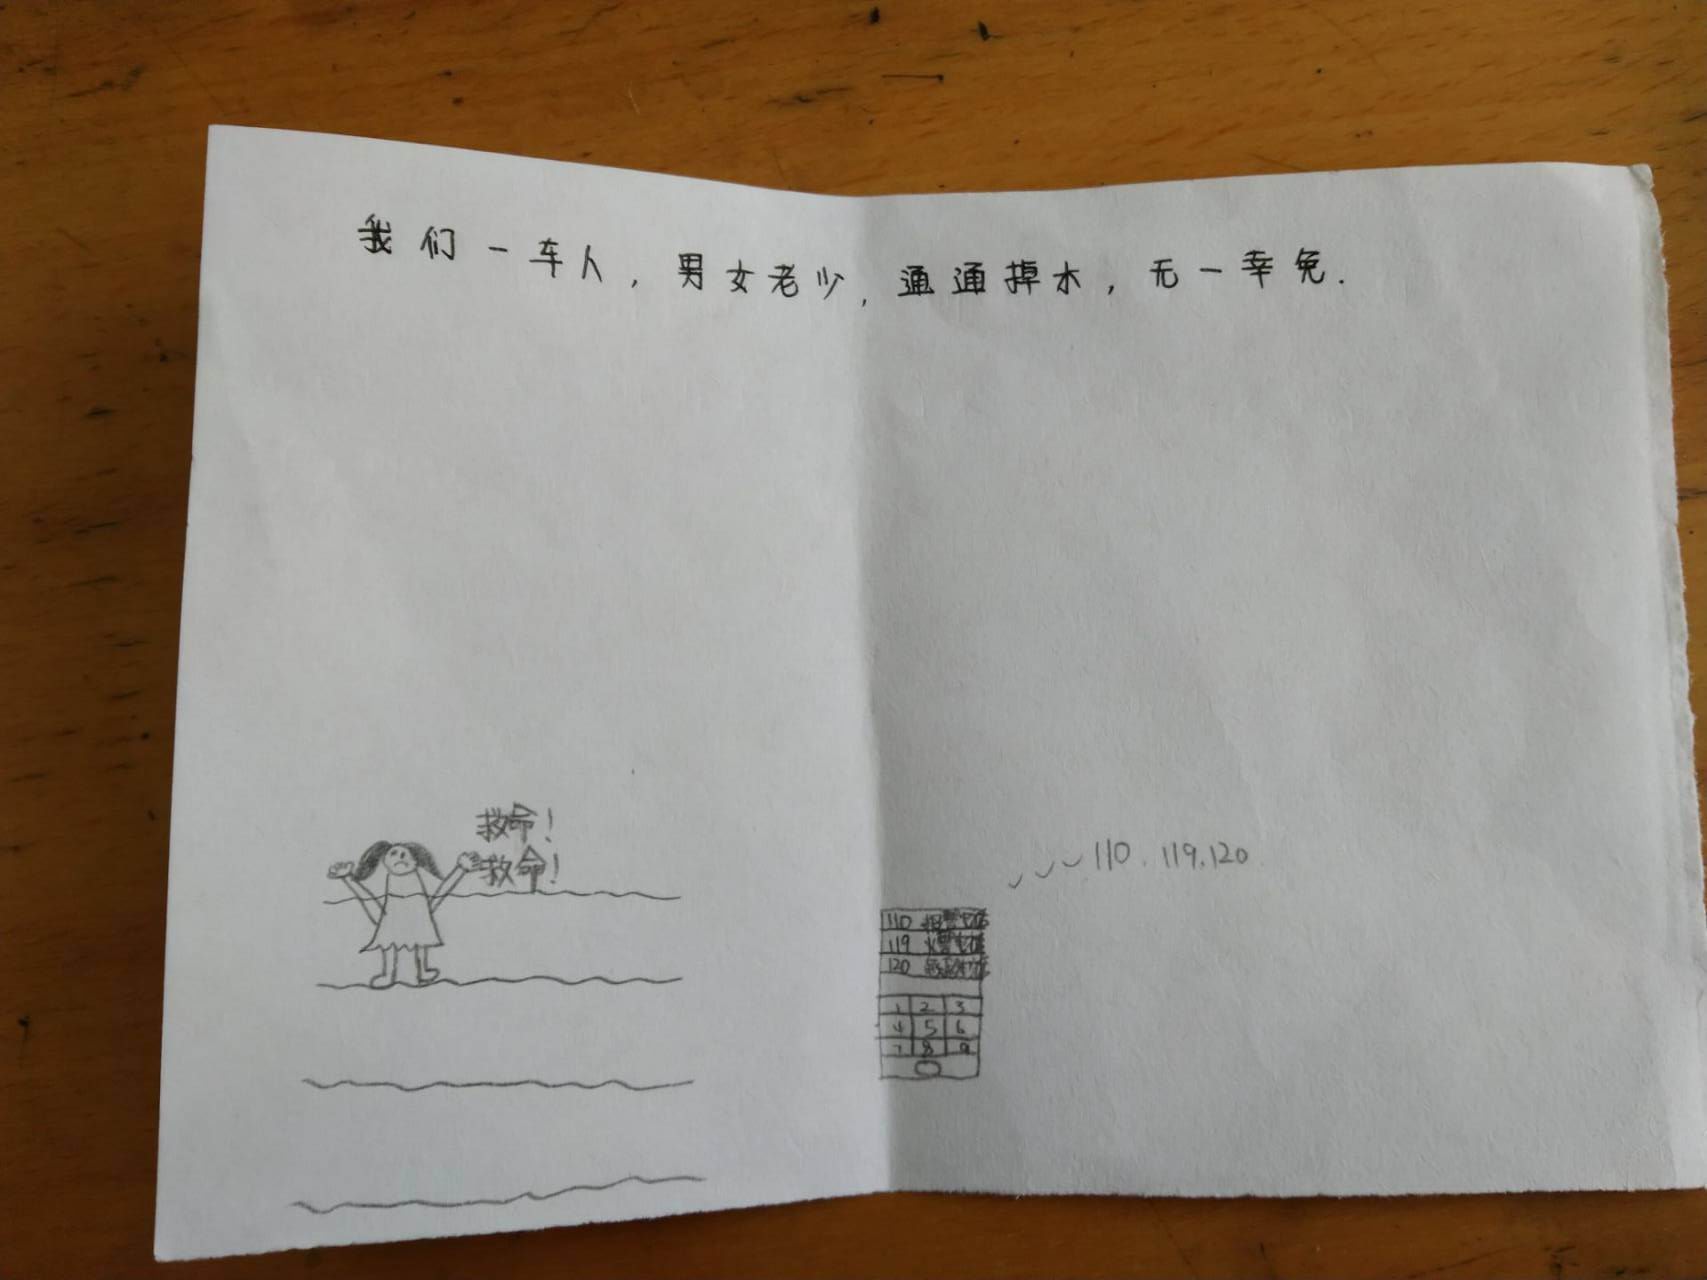 我们一车人，男女老少，通通掉水，无一幸免．
救命！
救命！
110．119．120
110 报警电话
119 火警电话
120 急救电话
1 2 3
4 5 6
7 8 9